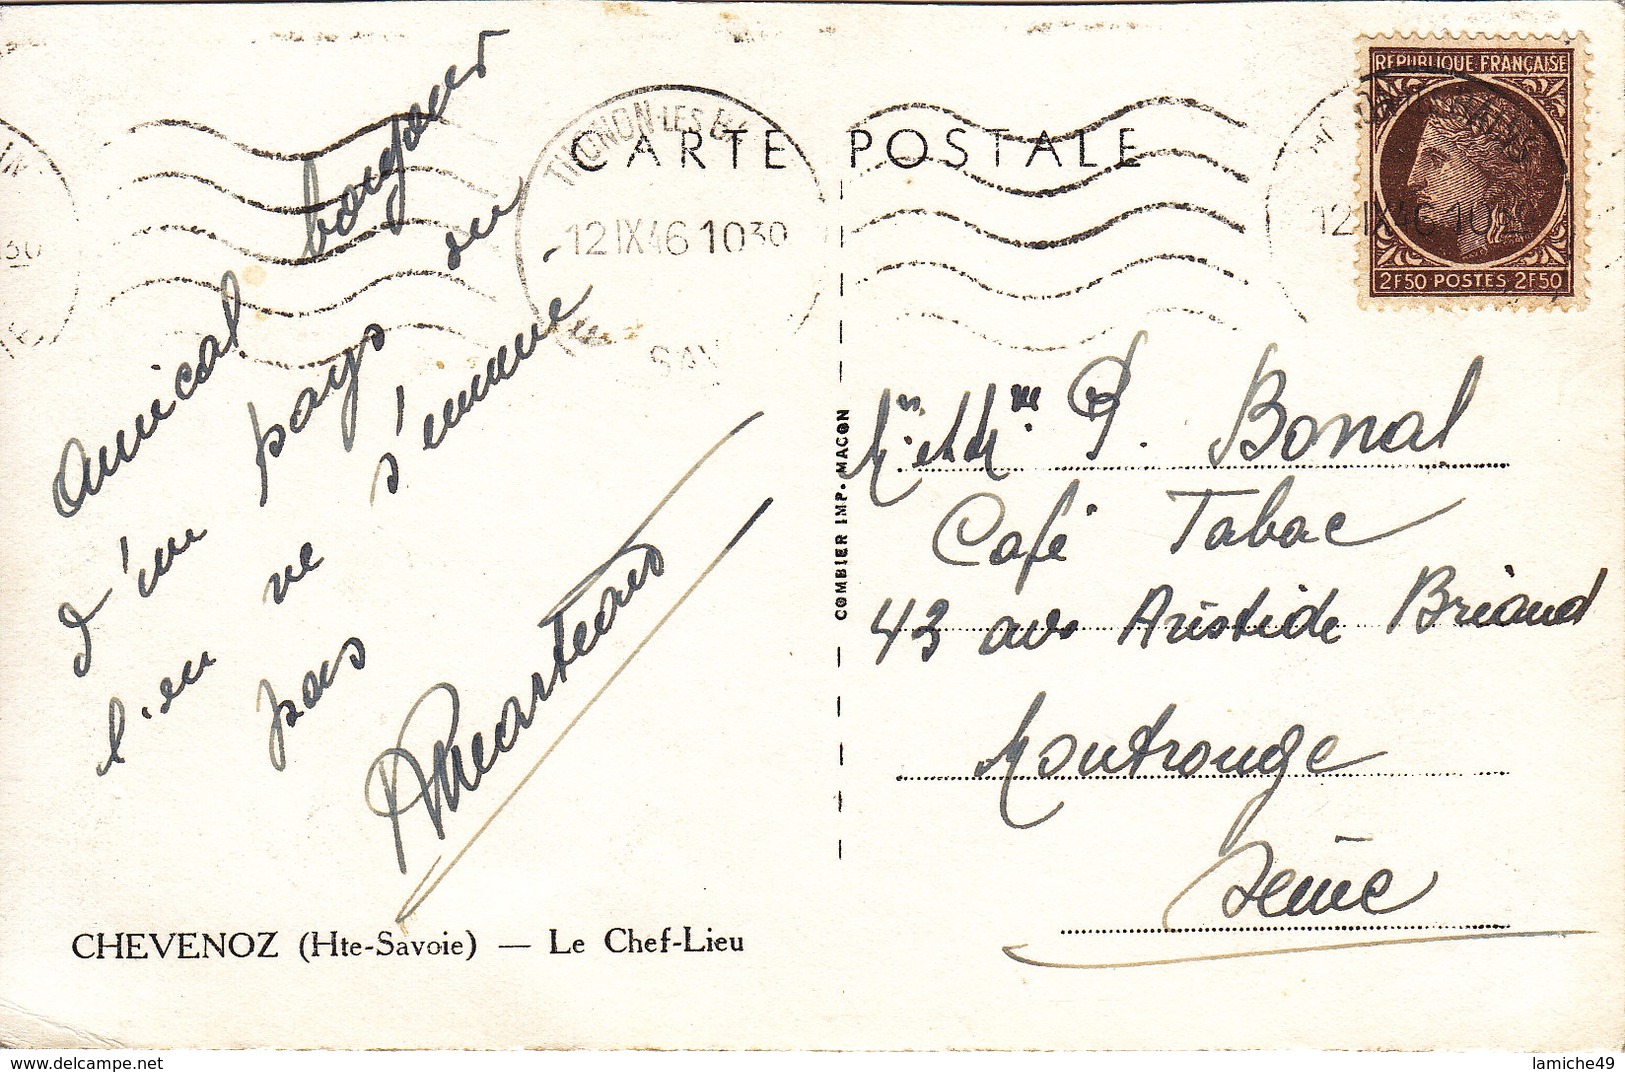 CARTE POSTALE
RÉPUBLIQUE FRANÇAISE
2F50 POSTES 2F50
THONON-LES-B
12 IX 46 1030
SAV
12 IX 46 10
Amical bonjour
d'un pays où
l'on ne s'ennuie
pas
CHEVENOZ (Hte-Savoie) — Le Chef-Lieu
COMBIER IMP. MACON
Mr. et Mme. P. Bonal
Café Tabac
43 ave Aristide Briand
Montrouge
Seine
delcampe.net
lamiche49